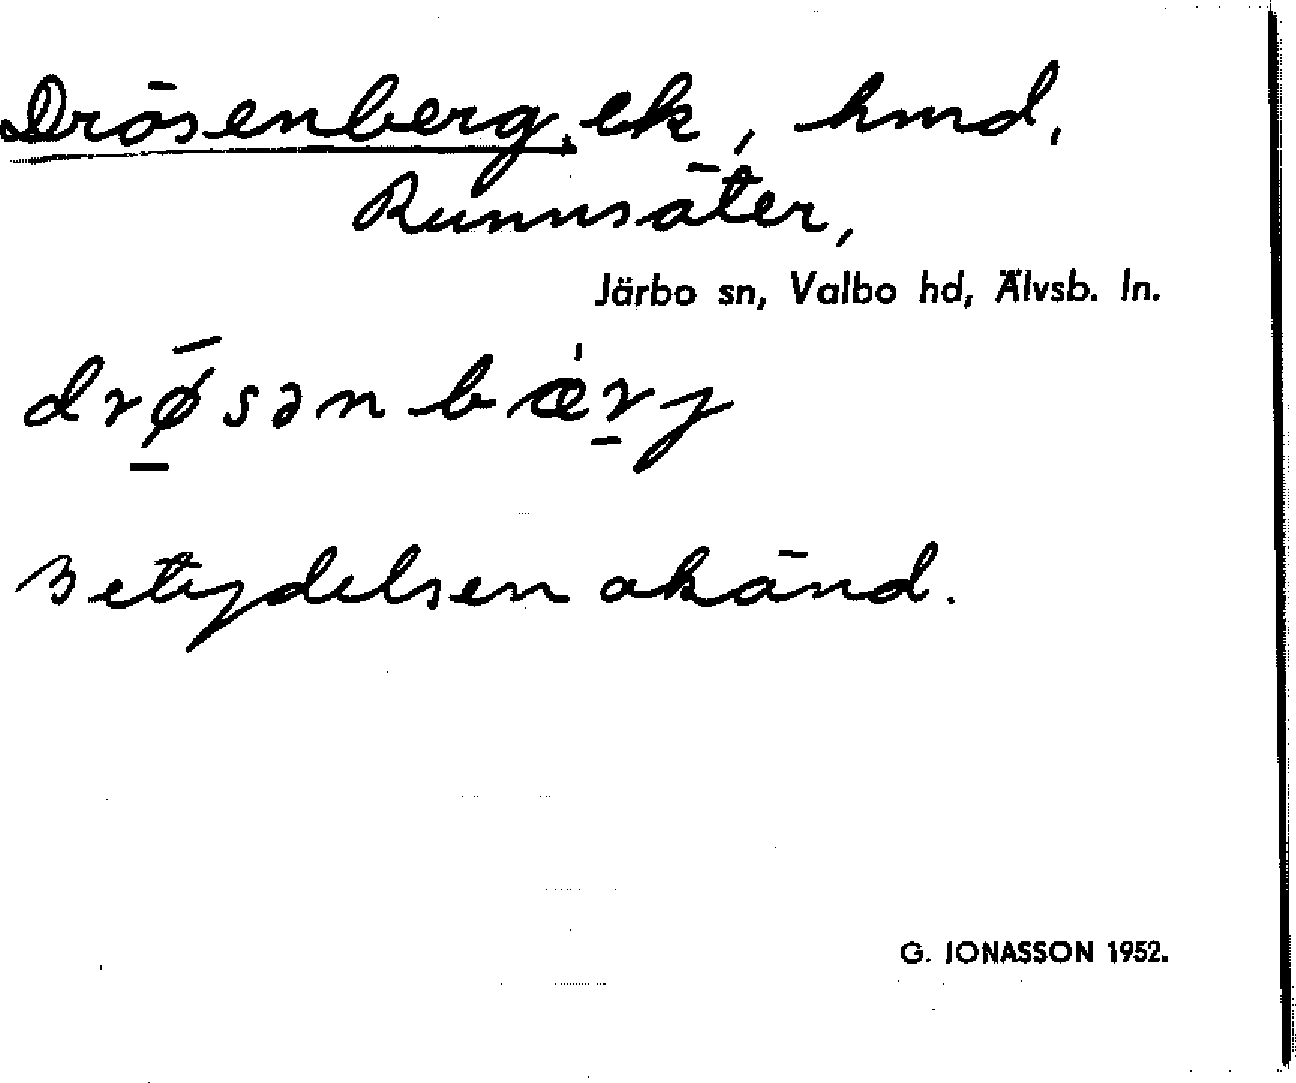 Drösenberg, ek, hmd,
Runnsäter,
Järbo sn, Valbo hd, Älvsb. ln.
drø̱̄sən bæ̀ṟj
Betydelsen okänd.
G. JONASSON 1952.